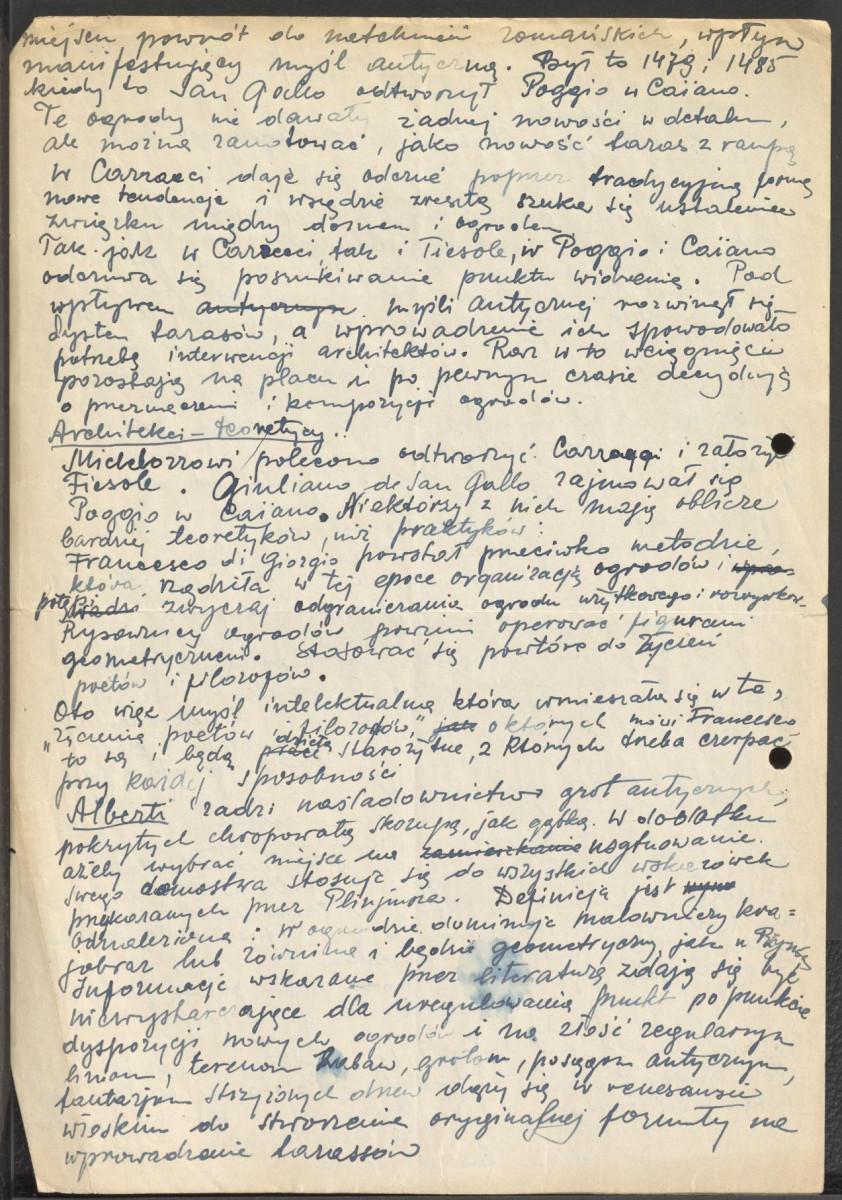 miejsca powrót do natchnień romańskich, wpływ
manifestujący myśl antyczną. Był to 1479 i 1485
kiedy to San Gallo odtworzył Poggio u Caiano.
Te ogrody nie dawały żadnej nowości w detalu,
ale można zanotować, jako nowość taras z rampą
W Carraeci daje się odczuć poprzez tradycyjną formę
nowe tendencje i wszędzie zresztą szuka się ustalenia
związku między domem i ogrodem
Tak jak w Careeci, tak i Fiesole, w Poggio i Caiano
odczuwa się poszukiwanie punktu widzenia. Pod
wpływem antycznym myśli antycznej rozwinął się
system tarasów, a wprowadzenie ich spowodowało
potrzebę interwencji architektów. Raz w to wciągnięci
pozostają na placu i po pewnym czasie decydują
o przeznaczeniu i kompozycji ogrodów.
Architekci – teoretycy.
Michelozzowi polecono odtworzyć Carreggi i założyć
Fiesole. Giuliano de San Gallo zajmował się
Poggio w Caiano. Niektórzy z nich mają oblicze
bardziej teoretyków, niż praktyków:
Francesco di Giorgio powstał przeciwko metodzie,
która rządziła w tej epoce organizacją ogrodów i
potępia zwyczaj odgraniczania ogrodu użytkowego i rozrywkow.
Rysownicy ogrodów powinni operować figurami
geometrycznemi. Stosować się powtóre do życzeń
poetów i filozofów.
Oto więc myśl intelektualna która wmieszała się w to,
"życzenia poetów i filozofów," jak o których mówi Francesco
to są i będą prace dzieła starożytne, z których trzeba czerpać
przy każdej sposobności
Alberti radzi naśladownictwo grot antycznych,
pokrytych chropowatą skorupą, jak gąbka. W dodatku
ażeby wybrać miejsce na zamieszkanie usytuowanie
swego domostwa stosuje się do wszystkich wskazówek
przekazanych przez Plinjusza. Definicja jest
odnaleziona: w ogrodzie dominuje malowniczy kra=
jobraz lub równina i będzie geometryczny, jak u Rzymian
Informacje wskazane przez literaturę zdają się być
niewystarczające dla uregulowania punkt po punkcie
dyspozycji nowych ogrodów i na złość regularnym
liniom, terenom zabaw, grotom, posągom antycznym,
fantazjom strzyżonych drzew dąży się w renesansie
włoskim do stworzenia oryginalnej formuły na
wprowadzenie tarassów